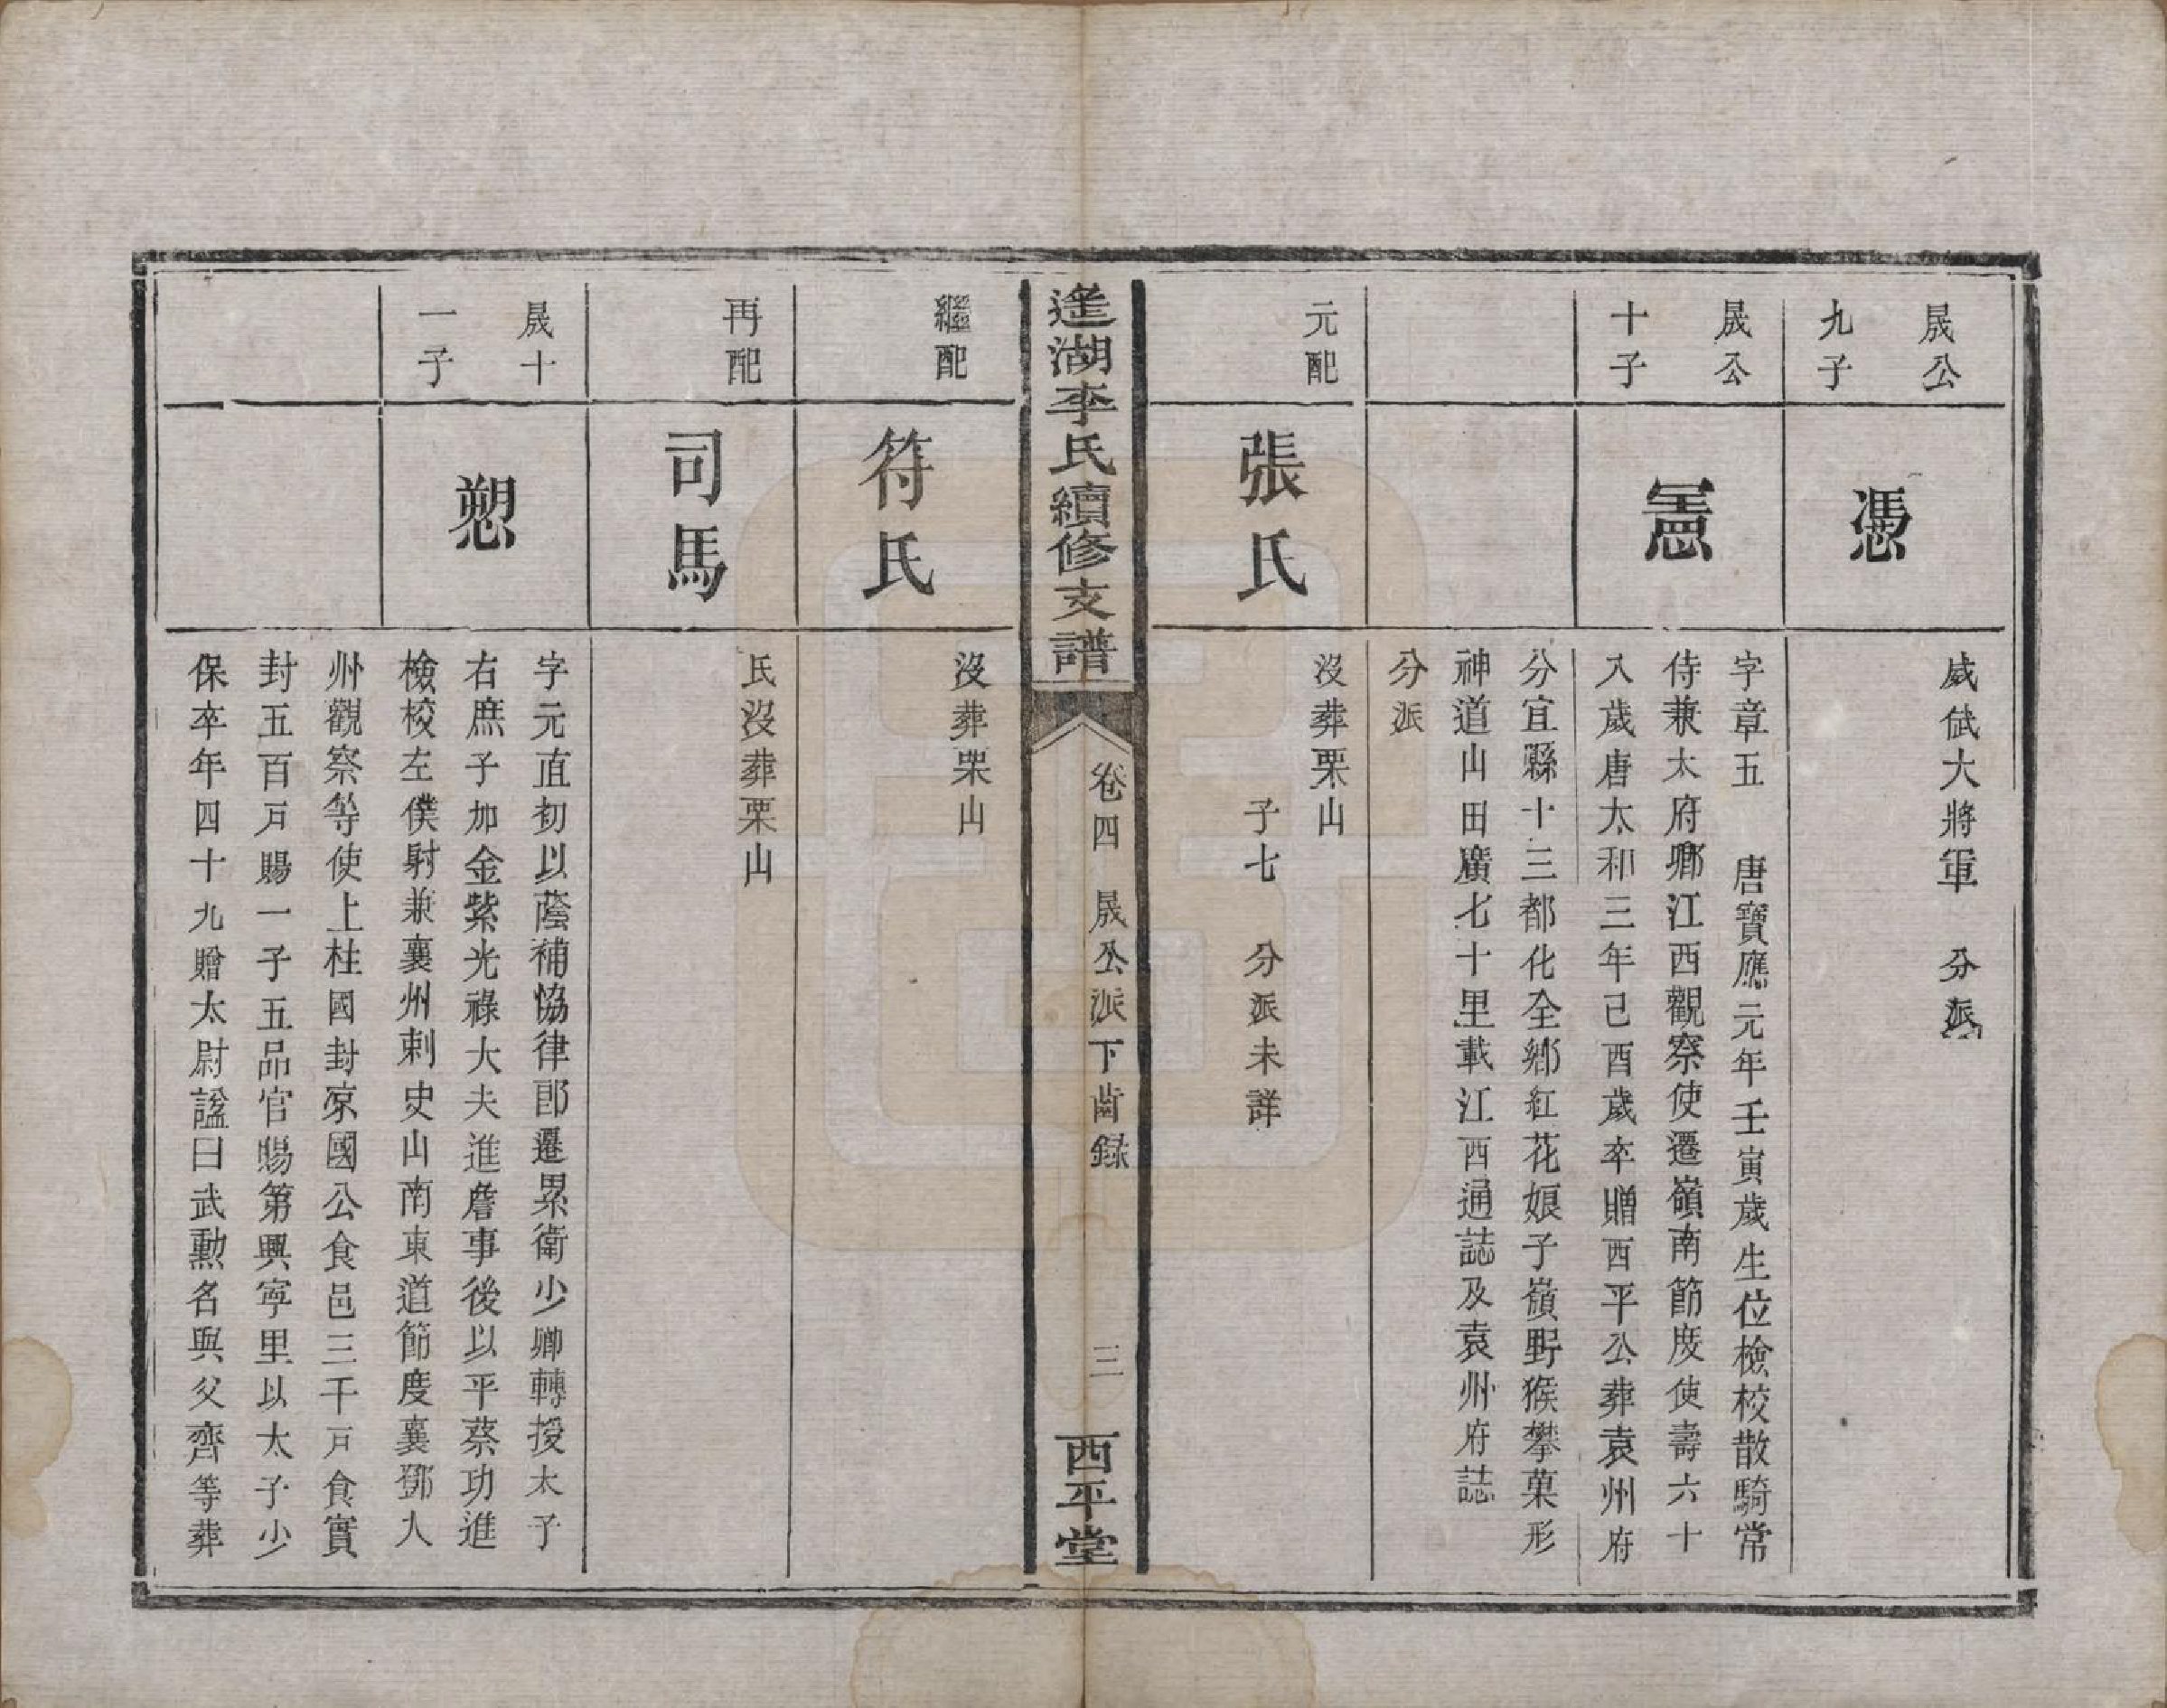 晟公
九子
憑
威武大將軍　分派
晟公
十子
憲
字章五　唐寶應元年壬寅歲生位檢校散騎常
侍兼太府卿江西觀察使遷嶺南節度使壽六十
八歲唐太和三年己酉歲卒贈西平公葬袁州府
分宜縣十三都化全鄉紅花娘子嶺野猴攀菓形
神道山田廣七十里載江西通誌及袁州府誌
分派
元配
張氏
沒葬栗山
子七　分派未詳
遙湖李氏續修支譜
卷四　晟公派下齒録
三
西平堂
繼配
符氏
沒葬栗山
再配
司馬
氏沒葬栗山
晟十
一子
愬
字元直初以蔭補協律郎遷累衛少卿轉授太子
右庶子加金紫光祿大夫進詹事後以平蔡功進
檢校左僕射兼襄州刺史山南東道節度襄鄧人
州觀察等使上柱國封凉國公食邑三千戸食實
封五百戸賜一子五品官賜第興寧里以太子少
保卒年四十九贈太尉諡曰武勳名與父齊等葬